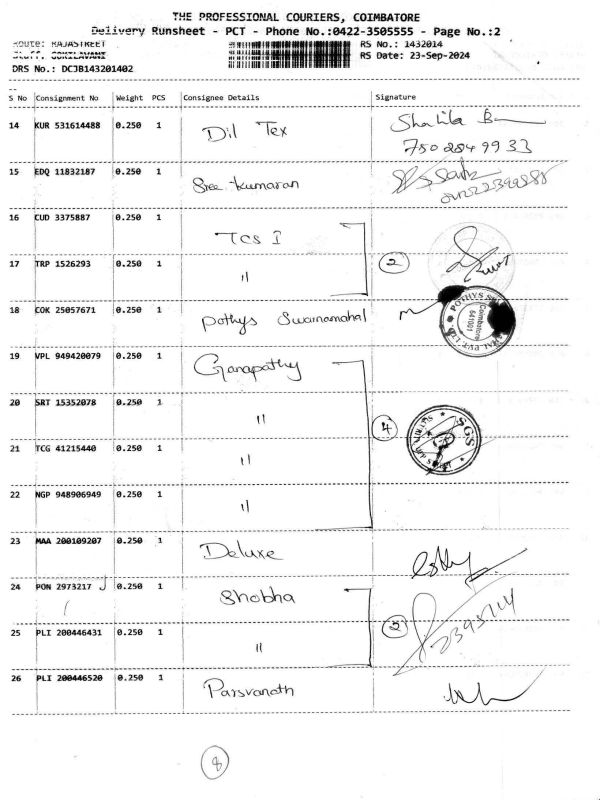 THE PROFESSIONAL COURIERS, COIMBATORE
Delivery Runsheet - PCT - Phone No.:0422-3505555 - Page No.:2
Route: RAJASTREET
RS No.: 1432014
Staff: GOKILAVANI
RS Date: 23-Sep-2024
DRS No.: DCJB143201402
S No Consignment No Weight PCS Consignee Details Signature
14 KUR 531614488 0.250 1 Dil Tex
7502849933
15 EDQ 11832187 0.250 1 Sree Kumaran
16 CUD 3375887 0.250 1 TCS I
17 TRP 1526293 0.250 1 " 2
18 COK 25057671 0.250 1 Pothys Swarnamahal
POTHYS
Coimbatore
641001
PVT LTD.
19 VPL 949420079 0.250 1 Ganapathy
20 SRT 15352078 0.250 1 " 4
SGS
21 TCG 41215440 0.250 1 "
22 NGP 948906949 0.250 1 "
23 MAA 200109207 0.250 1 Deluxe
24 PON 2973217 0.250 1 Shobha
25 PLI 200446431 0.250 1 "
26 PLI 200446520 0.250 1 Parsvanath
8